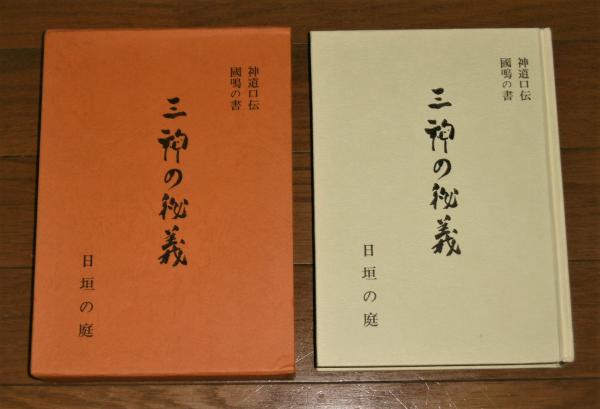 神道口伝
國鳴の書
三神の秘義
日垣の庭
神道口伝
國鳴の書
三神の秘義
日垣の庭